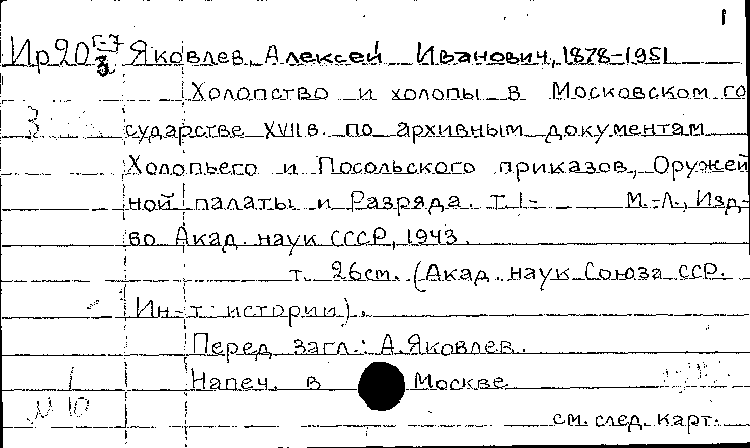 1
Ир20 Яковлев, Алексей Иванович, 1878-1951
Холопство и холопы в Московском го
3 сударстве XVII в. по архивным документам
Холопьего и Посольского приказов, Оружей
ной палаты и Разряда. т. 1- М.-Л., Изд-
во Акад. наук СССР, 1943.
т. 26см. (Акад. наук Союза ССР.
Ин-т истории).
Перед загл.: А. Яковлев.
Напеч. в Москве
N 10
см. след. карт.